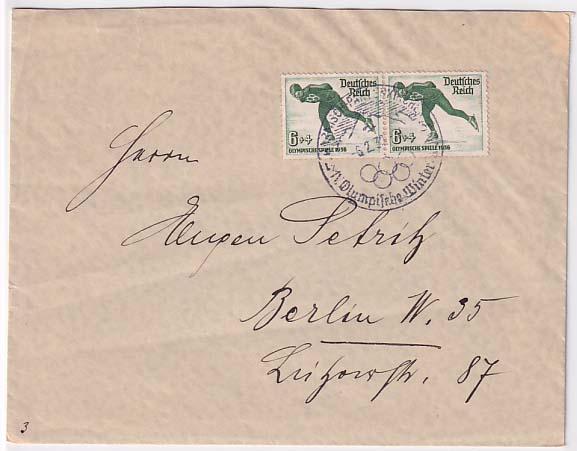 Deutsches Reich
6+4
OLYMPISCHE SPIELE 1936
Deutsches Reich
6+4
OLYMPISCHE SPIELE 1936
Olympische Winter
Herrn
Eugen Petritz
Berlin W. 35
Lützowstr. 87
3